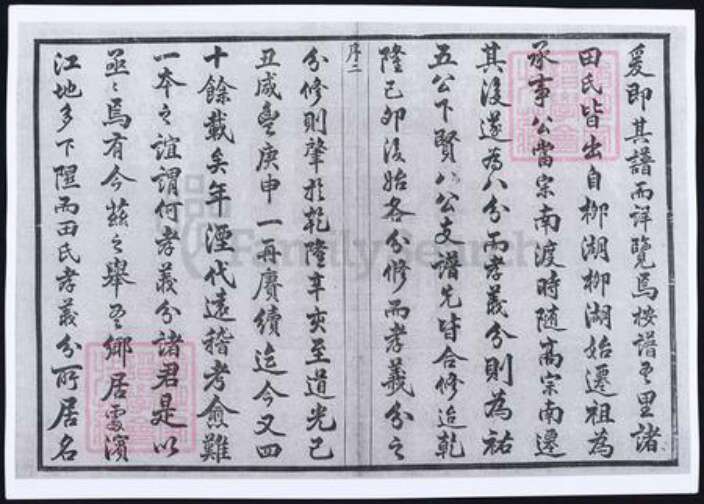 爰即其譜而詳覽焉按譜吾里諸
田氏皆出自柳湖柳湖始遷祖為
承事公當宋南渡時隨高宗南遷
其後遂為八分而孝義分則為祐
五公下賢八公支譜先皆合修迨乾
隆己卯後始各分修而孝義分之
序二
分修則肇於乾隆辛亥至道光己
丑咸豐庚申一再賡續迄今又四
十餘載矣年湮代遠稽考愈難
一本之誼謂何孝義分諸君是以
亟亟焉有今茲之舉吾鄉居電濱
江地多下隰而田氏孝義分所居名
FamilySearch